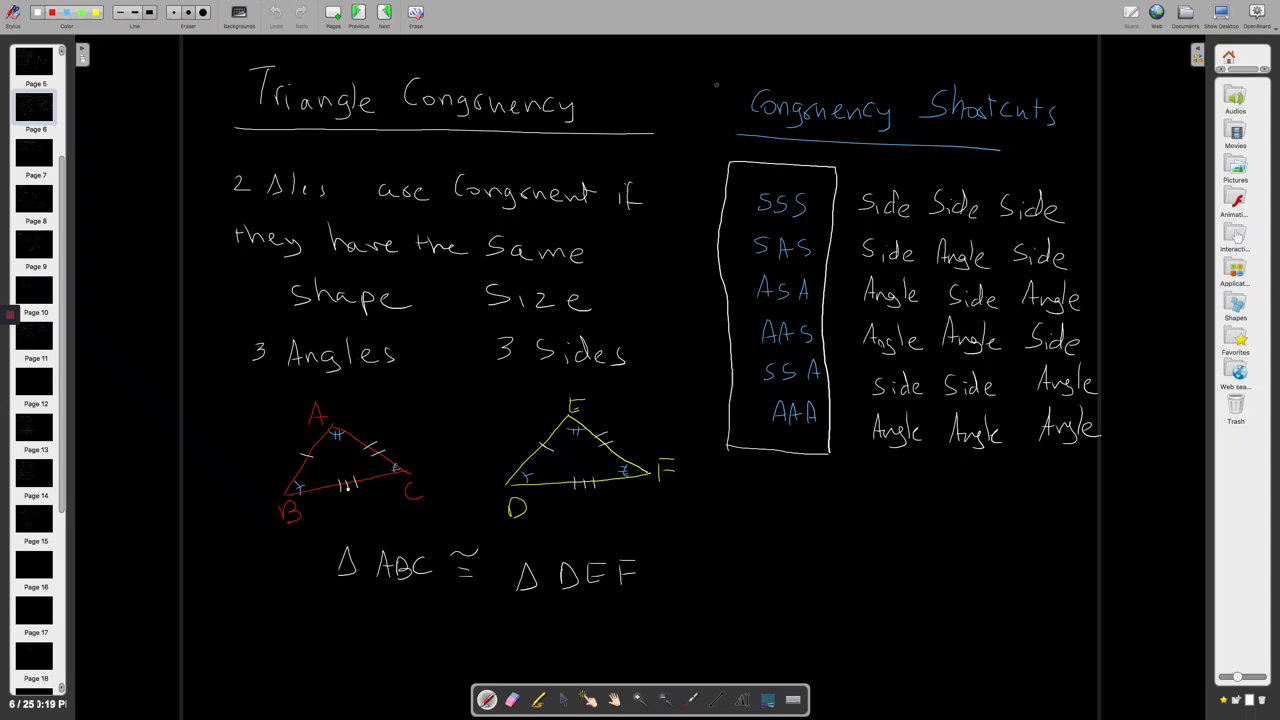 Stylus
Color
Line
Eraser
Backgrounds
Undo
Redo
Pages
Previous
Next
Erase
Board
Web
Documents
Show Desktop
OpenBoard
Page 5
Page 6
Page 7
Page 8
Page 9
Page 10
Page 11
Page 12
Page 13
Page 14
Page 15
Page 16
Page 17
Page 18
6 / 25
0:19 P
Triangle Congruency
2 Δles are Congruent if
they have the Same
shape Size
3 Angles 3 Sides
A
B
C
E
D
F
Δ ABC ≅ Δ DEF
Congruency Shortcuts
SSS Side Side Side
SAS Side Angle Side
ASA Angle Side Angle
AAS Angle Angle Side
SSA Side Side Angle
AAA Angle Angle Angle
Audios
Movies
Pictures
Animati...
Interacti...
Applicat...
Shapes
Favorites
Web sea...
Trash